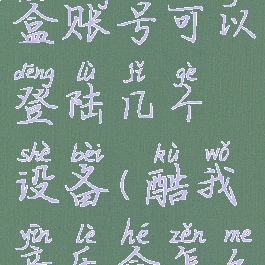 盒账号可以
dēng lù jǐ gè
登陆几个
shè bèi kù wǒ
设备(酷我
yīn lè hé zěn me
音乐合怎么